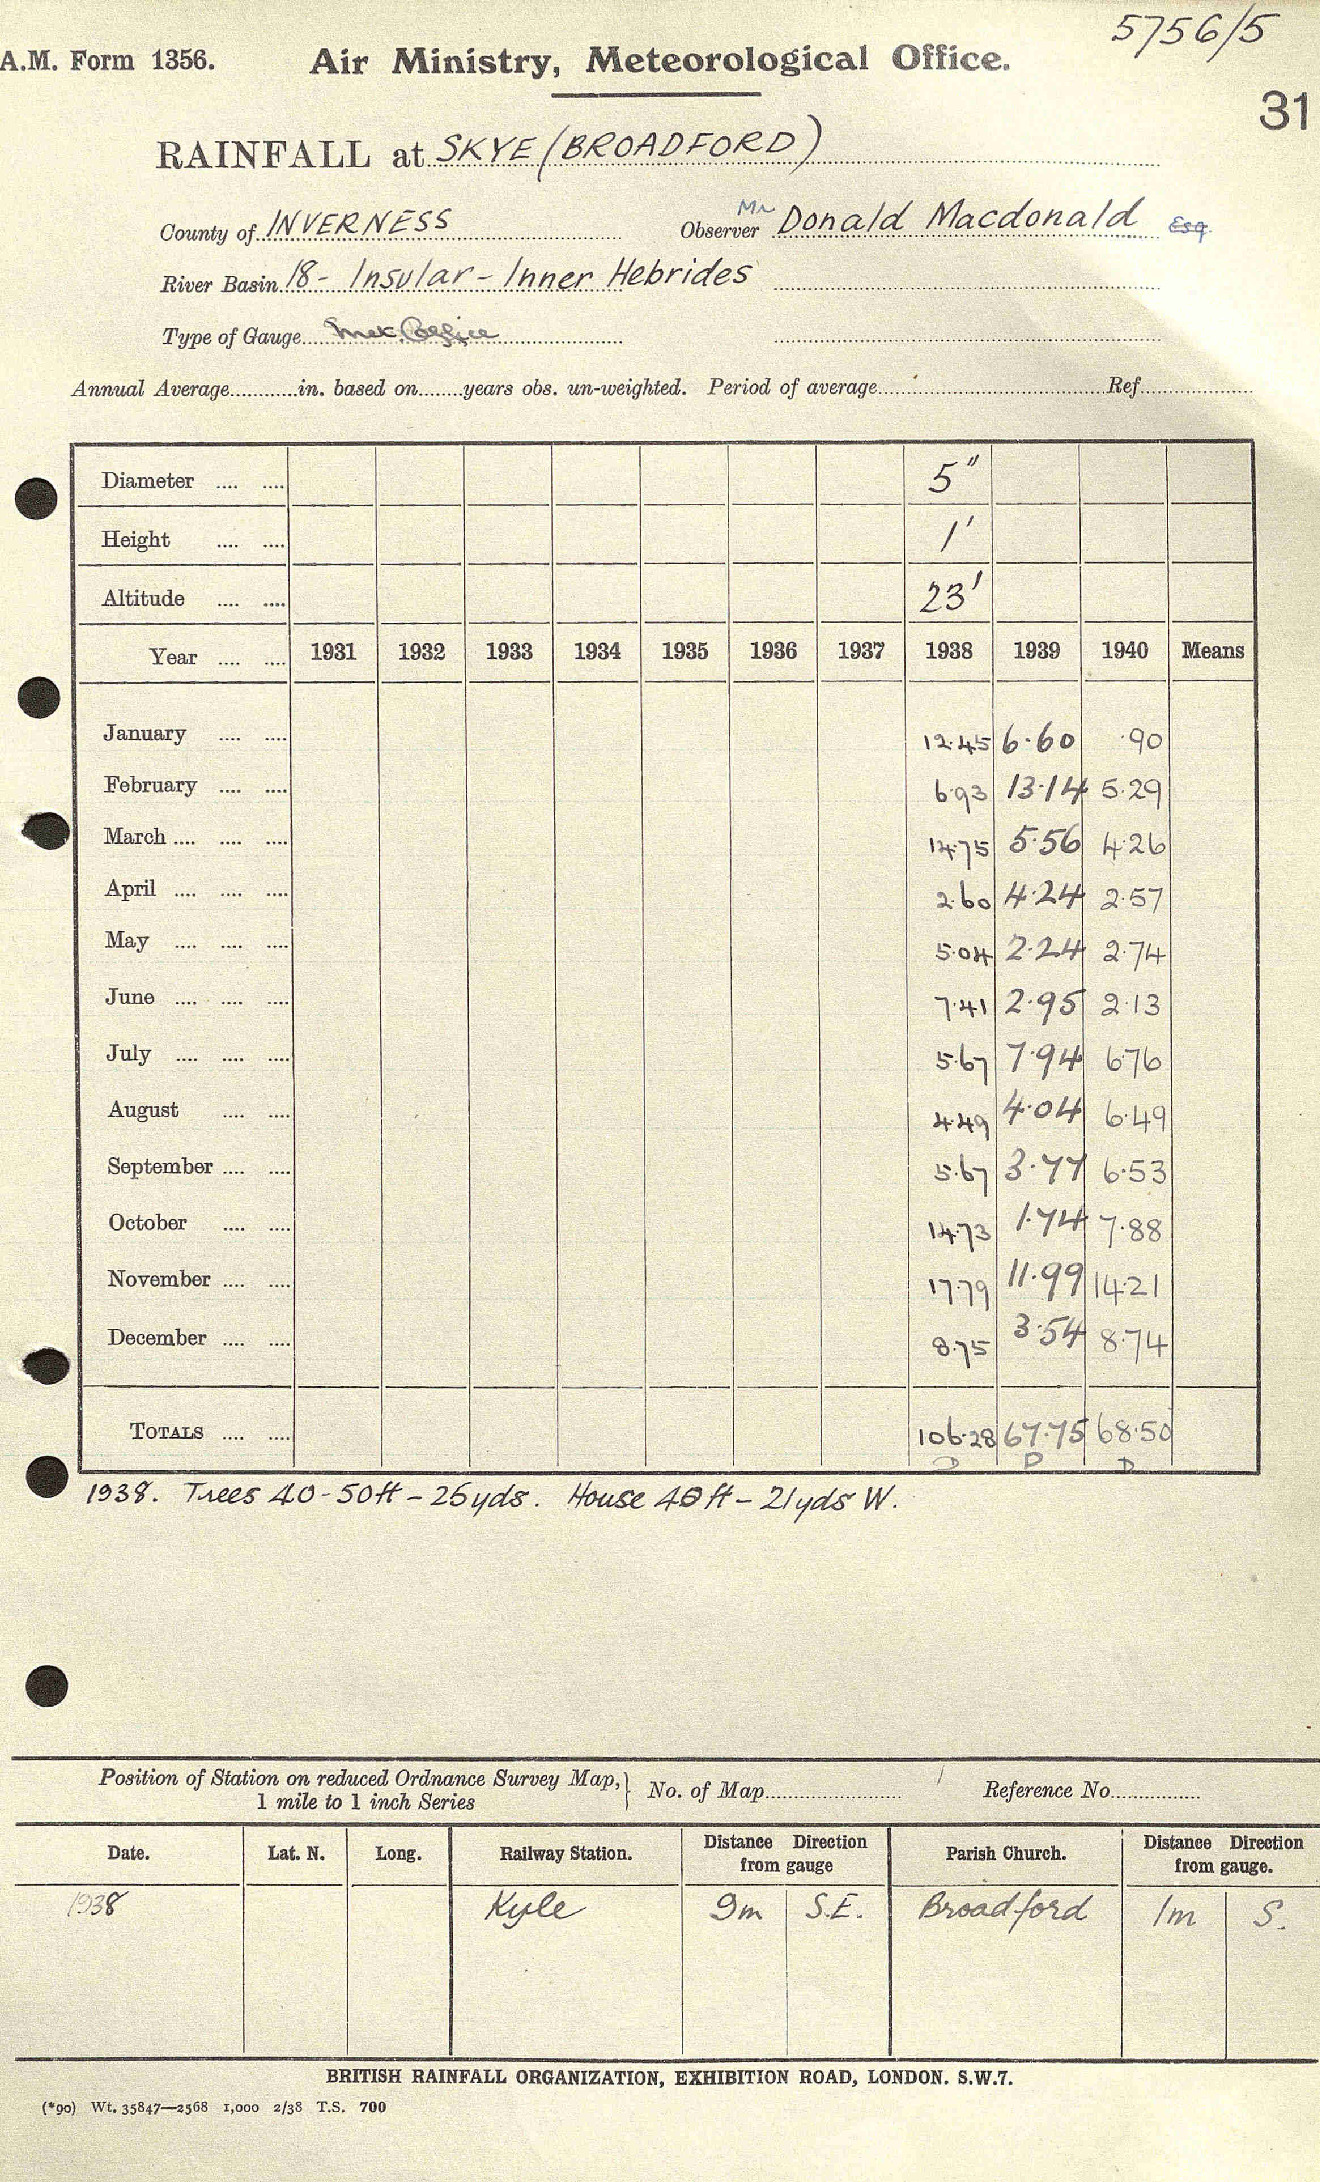 5756/5
A.M. Form 1356. Air Ministry, Meteorological Office.
31
RAINFALL at SKYE (BROADFORD)
County of INVERNESS Observer Mr Donald Macdonald Esq.
River Basin 18 - Insular - Inner Hebrides
Type of Gauge Met. Office
Annual Average in. based on years obs. un-weighted. Period of average Ref.
Diameter 5"
Height 1'
Altitude 23'
Year 1931 1932 1933 1934 1935 1936 1937 1938 1939 1940 Means
January 12.45 6.60 .90
February 6.93 13.14 5.29
March 14.75 5.56 4.26
April 2.60 4.24 2.57
May 5.04 2.24 2.74
June 7.41 2.95 2.13
July 5.67 7.94 6.76
August 4.49 4.04 6.49
September 5.67 3.77 6.53
October 14.73 1.74 7.88
November 17.79 11.99 14.21
December 8.75 3.54 8.74
TOTALS 106.28 67.75 68.50
D D D
1938. Trees 40-50ft - 25yds. House 40ft - 21yds W.
Position of Station on reduced Ordnance Survey Map, 1 mile to 1 inch Series No. of Map Reference No.
Date. Lat. N. Long. Railway Station. Distance Direction from gauge Parish Church. Distance Direction from gauge.
1938 Kyle 9m S.E. Broadford 1m S.
BRITISH RAINFALL ORGANIZATION, EXHIBITION ROAD, LONDON. S.W.7.
(*90) Wt. 35847—2568 1,000 2/38 T.S. 700